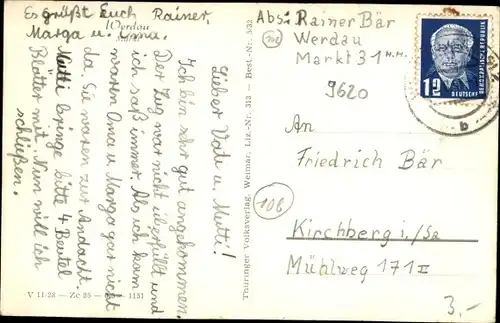 Es grüßt Euch Rainer,
Marga u. Oma.
(Werdau
Markt
Lieber Vati u. Mutti!
Ich bin sehr gut angekommen.
Der Zug war nicht überfüllt und
ich saß immer. Als ich kam
waren Oma u. Marga gar nicht
da. Sie waren zur Andacht.
Mutti bringe bitte 4 Beutel
Blätter mit. Nun will ich
schließen.
V 11/28 — Zc 25 1151
Thüringer Volksverlag, Weimar, Liz.-Nr. 313 — Best.-Nr. 5/32
Abs: Rainer Bär
Werdau
Markt 31 H.H.
9620
DEUTSCHE
DEMOKRATISCHE REPUBLIK
12
b
An
Friedrich Bär
108
Kirchberg i./Sa
Mühlweg 171 II
3,-